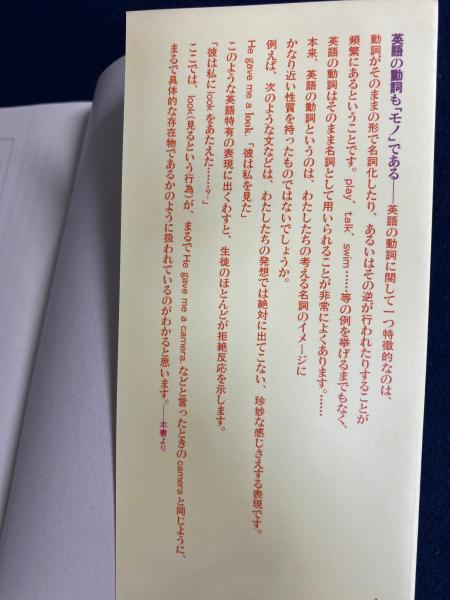 英語の動詞も「モノ」である――英語の動詞に関して一つ特徴的なのは、
動詞がそのままの形で名詞化したり、あるいはその逆が行われたりすることが
頻繁にあるということです。play、talk、swim……等の例を挙げるまでもなく、
英語の動詞はそのまま名詞として用いられることが非常によくあります。……
本来、英語の動詞というのは、わたしたちの考える名詞のイメージに
かなり近い性質を持ったものではないでしょうか。
例えば、次のような文などは、わたしたちの発想では絶対に出てこない、珍妙な感じさえする表現です。
He gave me a look.「彼は私を見た」
このような英語特有の表現に出くわすと、生徒のほとんどが拒絶反応を示します。
「彼は私に look をあたえた……?」
ここでは、look(見るという行為)が、まるで He gave me a camera. などと言ったときの camera と同じように、
まるで具体的な存在物であるかのように扱われているのがわかると思います。――本書より